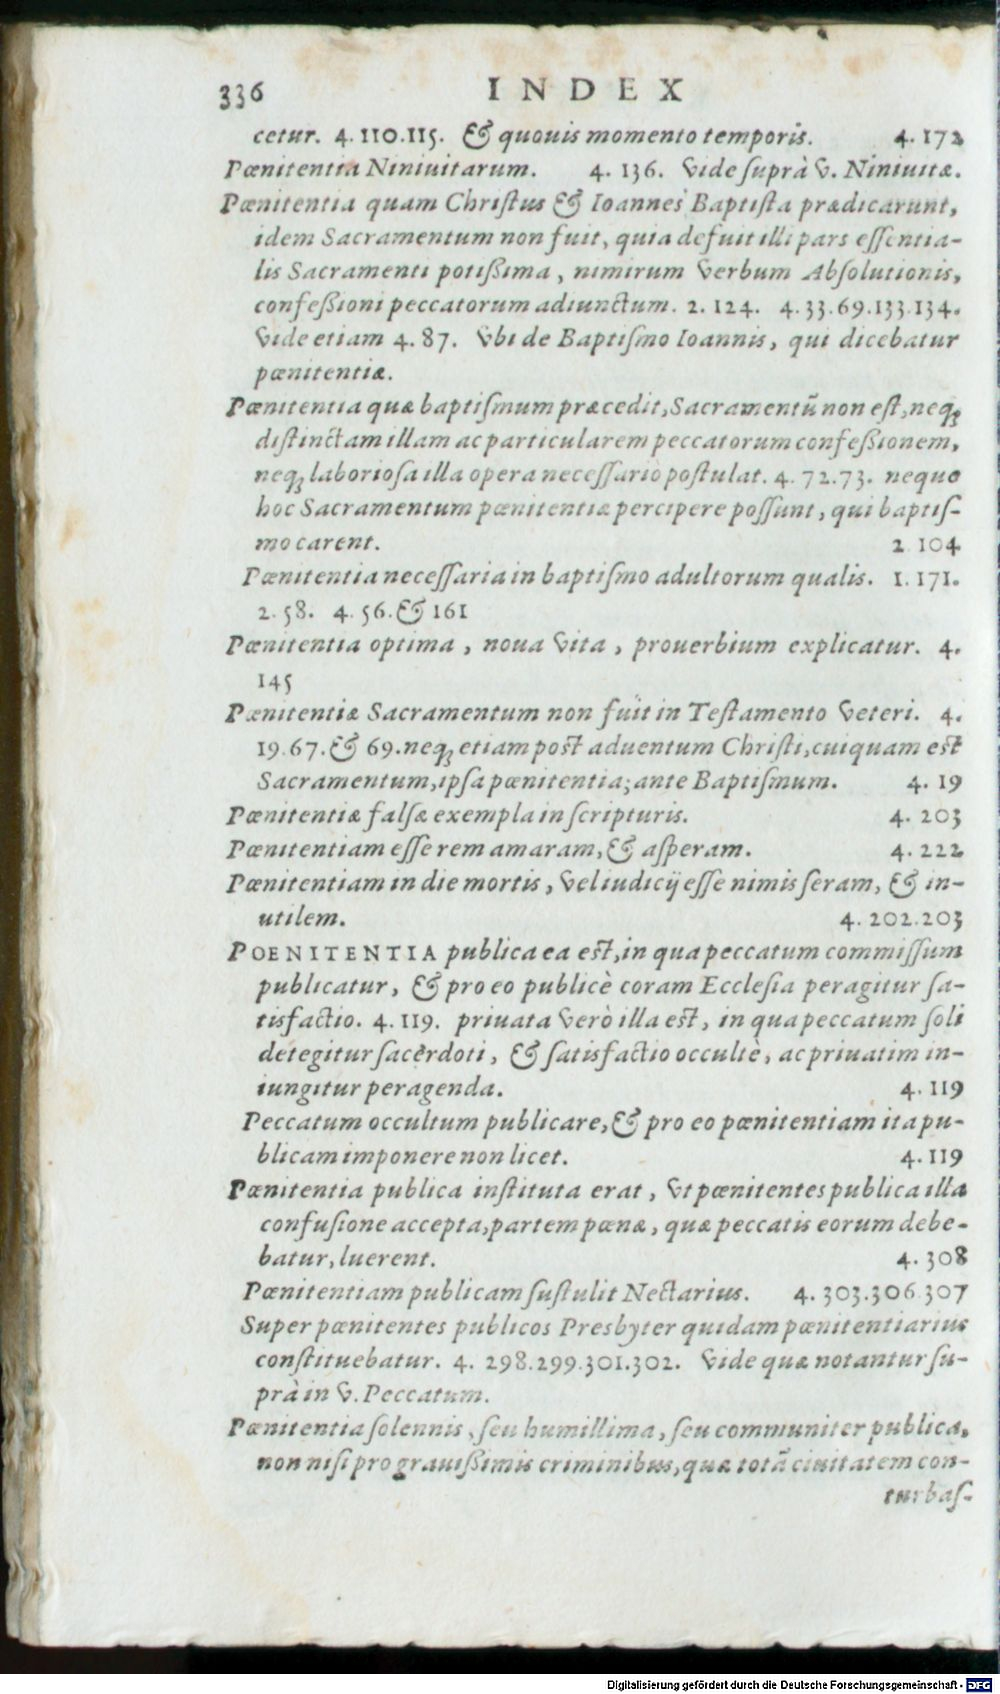 336 INDEX
cetur. 4.110.115. & quouis momento temporis. 4.172
Pœnitentia Niniuitarum. 4.136. Vide suprà V. Niniuitæ.
Pœnitentia quam Christus & Ioannes Baptista prædicarunt,
idem Sacramentum non fuit, quia defuit illi pars essentia-
lis Sacramenti potißima, nimirum Verbum Absolutionis,
confeßioni peccatorum adiunctum. 2.124. 4.33.69.133.134.
Vide etiam 4.87. Vbi de Baptismo Ioannis, qui dicebatur
pœnitentiæ.
Pœnitentia quæ baptismum præcedit, Sacramentũ non est, neqꝫ
distinctam illam ac particularem peccatorum confeßionem,
neqꝫ laboriosa illa opera necessariò postulat. 4.72.73. neque
hoc Sacramentum pœnitentiæ percipere possunt, qui baptis-
mo carent. 2.104
Pœnitentia necessaria in baptismo adultorum qualis. 1.171.
2.58. 4.56. & 161
Pœnitentia optima, noua Vita, prouerbium explicatur. 4.
145
Pœnitentiæ Sacramentum non fuit in Testamento Veteri. 4.
19.67. & 69. neqꝫ etiam post aduentum Christi, cuiquam est
Sacramentum, ipsa pœnitentia; ante Baptismum. 4.19
Pœnitentiæ falsæ exempla in scripturis. 4.203
Pœnitentiam esse rem amaram, & asperam. 4.222
Pœnitentiam in die mortis, Vel iudicij esse nimis seram, & in-
utilem. 4.202.203
POENITENTIA publica ea est, in qua peccatum commissum
publicatur, & pro eo publicè coram Ecclesia peragitur sa-
tisfactio. 4.119. priuata Verò illa est, in qua peccatum soli
detegitur sacerdoti, & satisfactio occultè, ac priuatim in-
iungitur peragenda. 4.119
Peccatum occultum publicare, & pro eo pœnitentiam ita pu-
blicam imponere non licet. 4.119
Pœnitentia publica instituta erat, Vt pœnitentes publica illa
confusione accepta, partem pœnæ, quæ peccatis eorum debe-
batur, luerent. 4.308
Pœnitentiam publicam sustulit Nectarius. 4.303.306.307
Super pœnitentes publicos Presbyter quidam pœnitentiarius
constituebatur. 4.298.299.301.302. Vide quæ notantur su-
prà in V. Peccatum.
Pœnitentia solennis, seu humillima, seu communiter publica,
non nisi pro grauißimis criminibus, quæ totã ciuitatem con-
turbas-
Digitalisierung gefördert durch die Deutsche Forschungsgemeinschaft - DFG